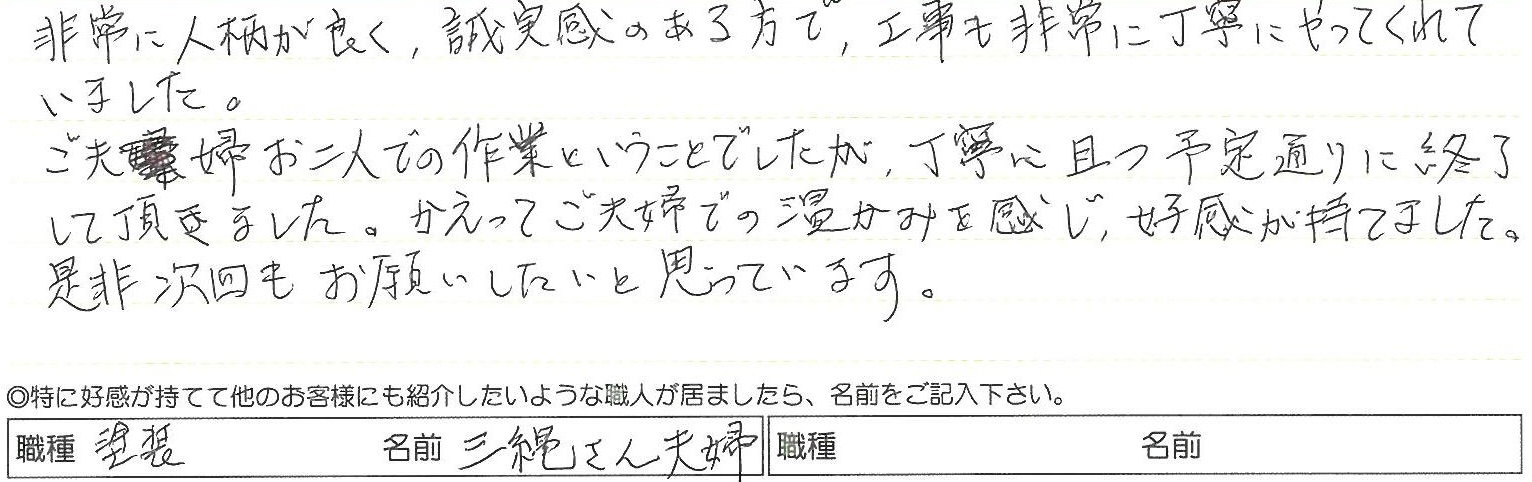 非常に人柄が良く,誠実感のある方で,工事も非常に丁寧にやってくれて
いました。
ご夫婦お二人での作業ということでしたが,丁寧に且つ予定通りに終了
して頂きました。かえってご夫婦での温かみを感じ,好感が持てました。
是非次回もお願いしたいと思っています。
◎特に好感が持てて他のお客様にも紹介したいような職人が居ましたら、名前をご記入下さい。
職種 塗装 名前 三縄さん夫婦 職種 名前